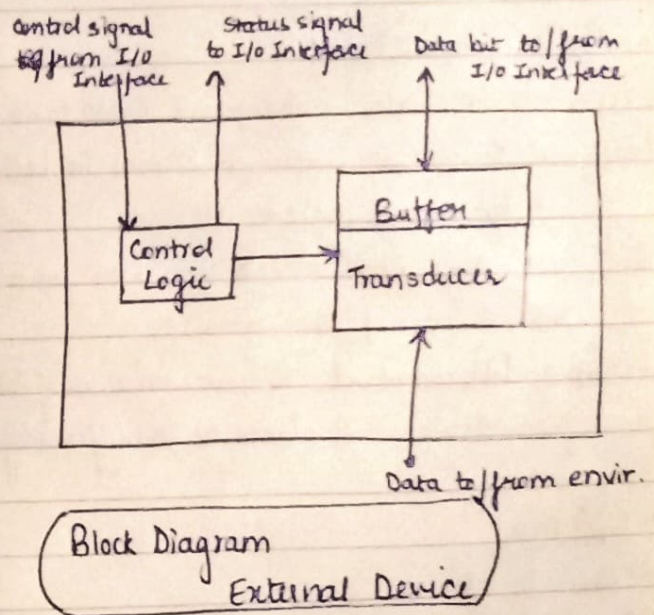 Control signal
from I/O
Interface
Status signal
to I/O Interface
Data bit to/from
I/O Interface
Buffer
Control
Logic
Transducer
Data to/from envir.
Block Diagram
External Device